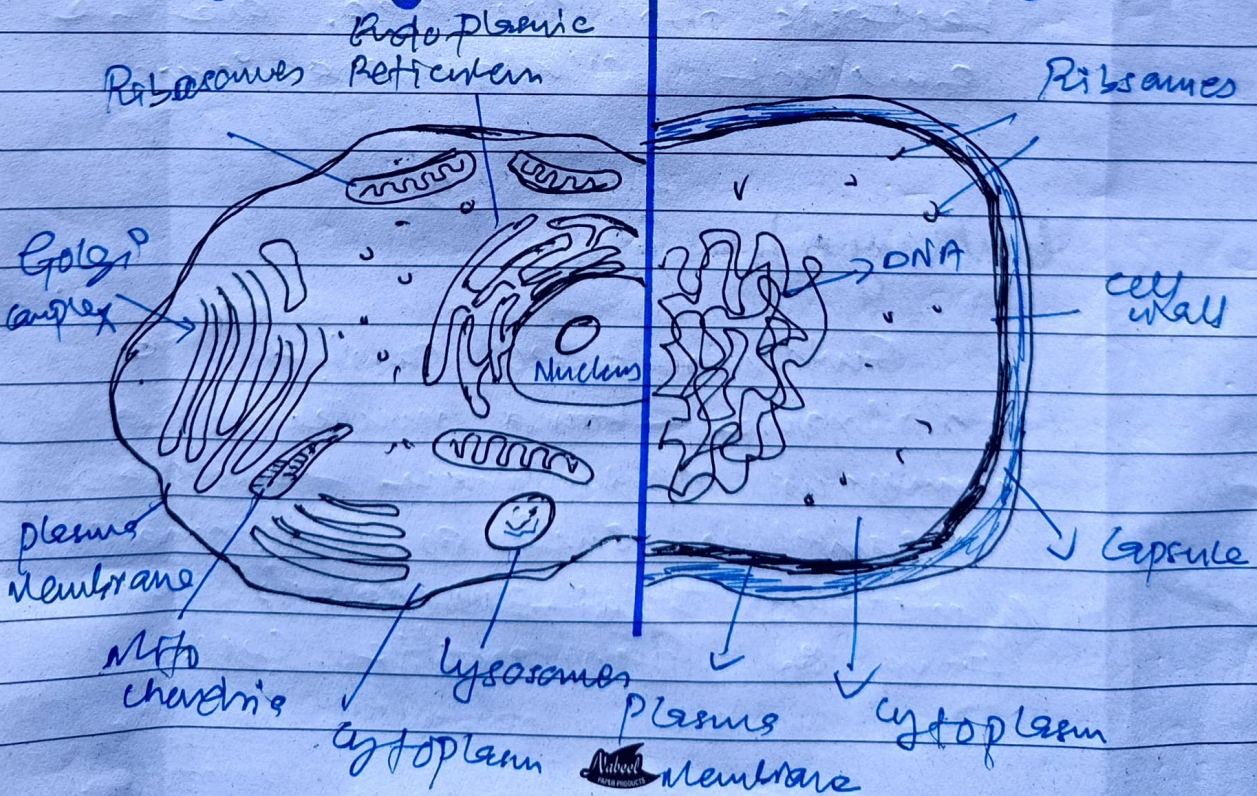 Endoplasmic
Reticulum
Ribosomes
Ribsomes
Golgi
complex
DNA
cell
wall
Nucleus
plasma
Membrane
Capsule
Mito
chondria
Lysosomes
Cytoplasm
Plasma
Membrane
Cytoplasm
Nabeel
PAPER PRODUCTS